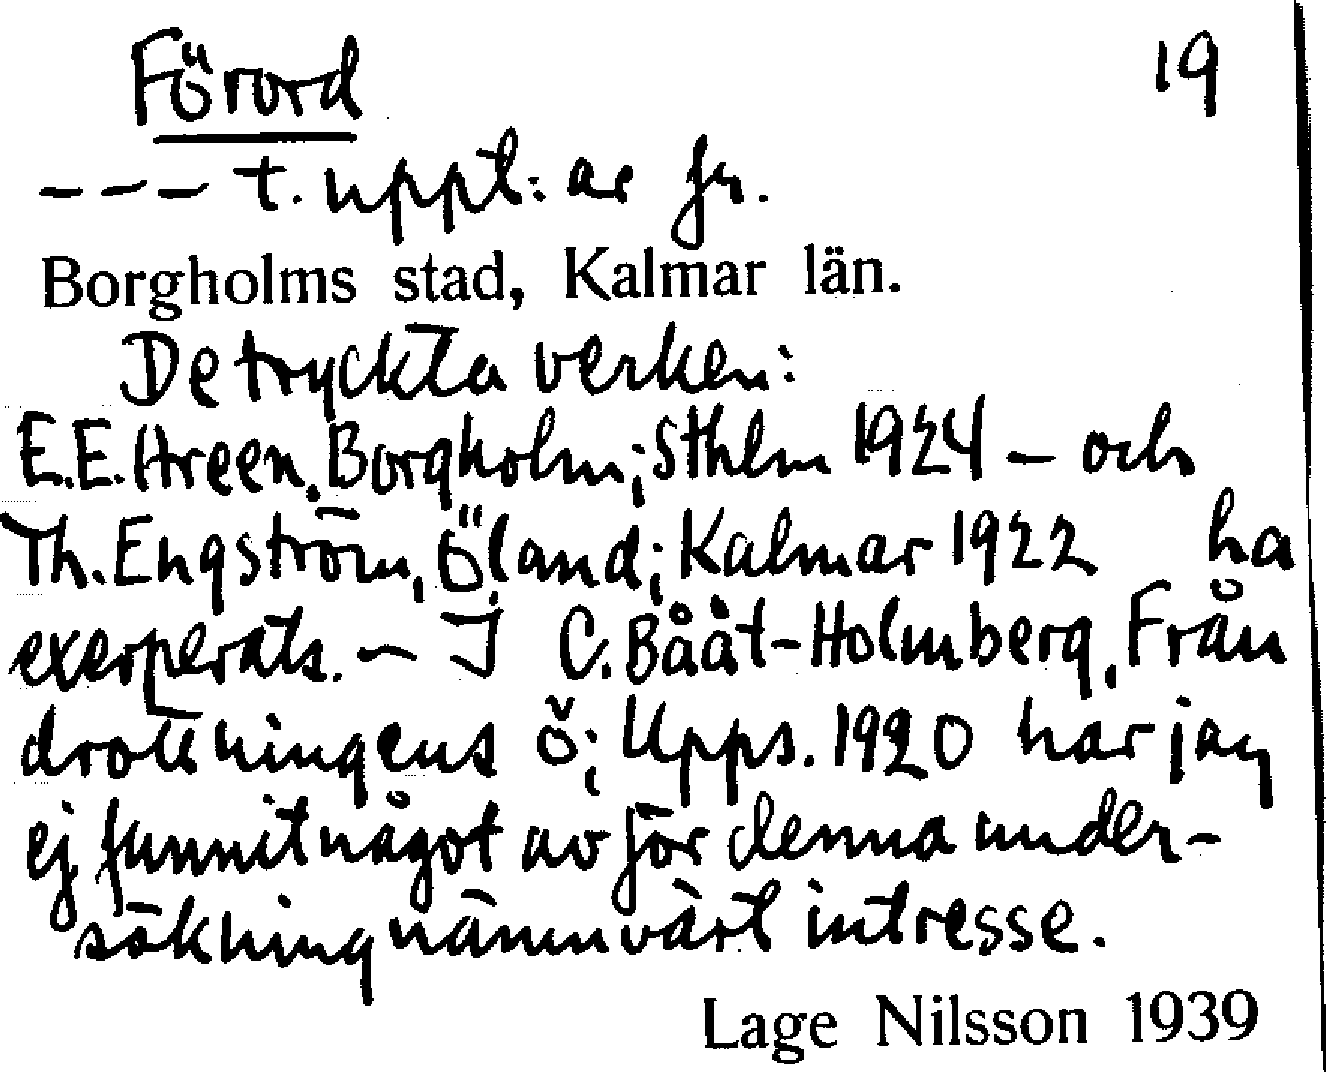 Förord 19
--- t. uppt: ar fr.
Borgholms stad, Kalmar län.
De tryckta verken:
E.E. Areen, Borgholm; Sthlm 1924 – och
Th. Engström, Öland; Kalmar 1922 ha
exerperats. – I C. Bååt-Holmberg, Från
drottningens ö; Upps. 1920 har jag
ej funnit något av för denna under-
sökning nämnvärt intresse.
Lage Nilsson 1939